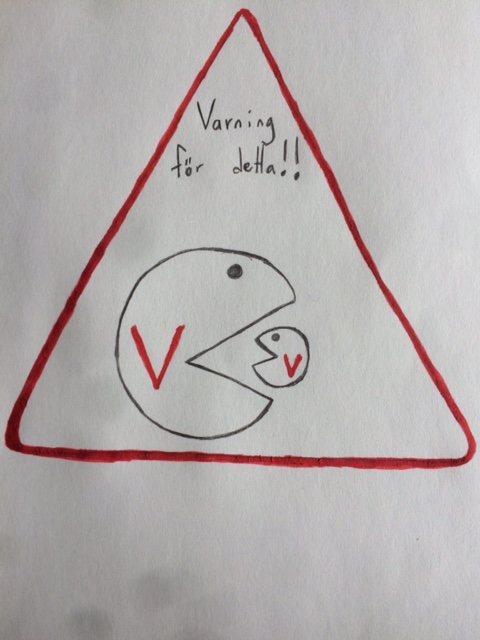 Varning
för detta!!
V
V